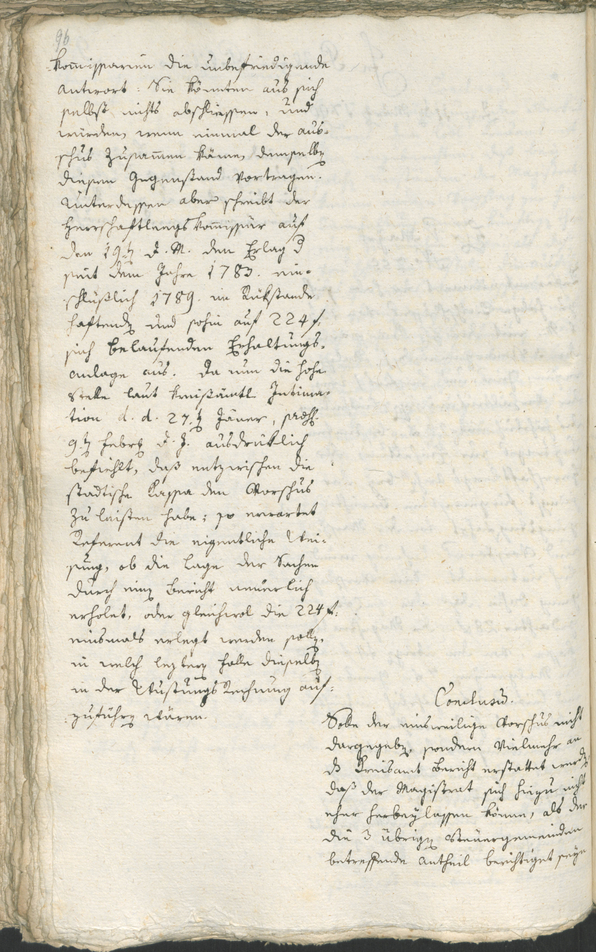 96
Kommissarien die unbefriedigende
Antwort: Sie könnten aus sich
selbst nichts abschliessen, und
würden, wenn einmal der Aus-
schus zusammen käme, demselbẽ
diesen Gegenstand vortragen.
Unterdessen aber schreibt der
Herrschaftliche Kommissär auf
den 19ṭ d. M. den Erlag d
seit dem Jahre 1783. ein-
schlüßlich 1789. im Rükstande
haftendẽ und sohin auf 224 f
sich belaufenden Erhaltungs-
anlage aus. Da nun die hohe
Stelle laut kreisämtl. Intima-
tion d. d. 27.ṭ Jäner, präs.
9ṭ Febrẽ d. J. ausdrüklich
befiehlt, daß entzwischen die
städtische Kassa den Vorschus
zu leisten habe; so erwartet
Referent die eigentliche Wei-
sung, ob die Lage der Sachen
durch einẽ Bericht neuerlich
erholet, oder gleichwol die 224 f.
einsmals erlegt werden sollẽ,
in welch leztern Falle dieselbẽ
in der Wustungs Rechnung auf-
zuführẽ wären.
Conclusũ.
Solle der einsweilige Vorschus nicht
dargegebẽ, sondern vielmehr an
ds Kreisamt Bericht erstattet werdẽ
daß der Magistrat sich hiezu nicht
eher herbeylassen könne, als der
die 3 übrigẽ Steuergemeinden
betreffende Antheil berichtiget seye